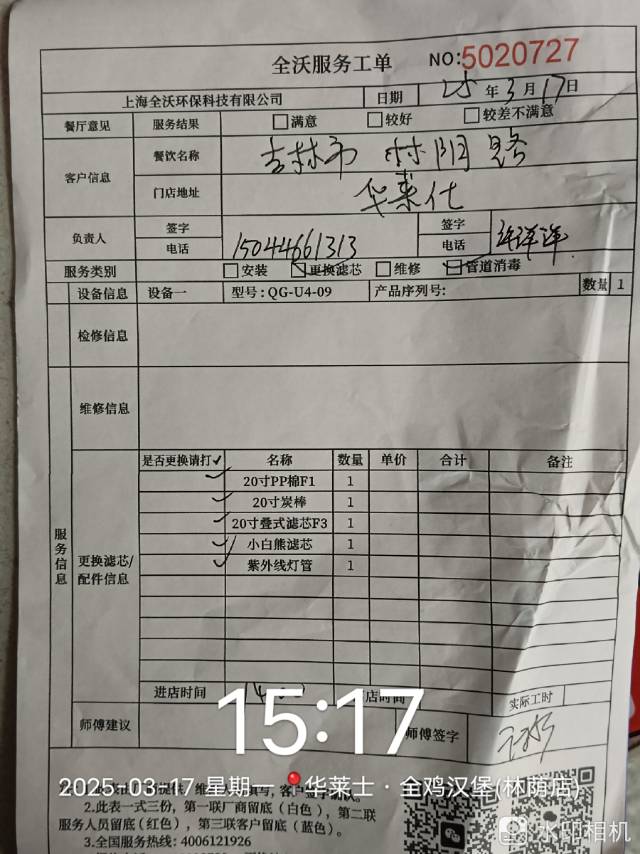 全沃服务工单 NO:5020727
上海全沃环保科技有限公司 日期 25年3月17日
餐厅意见 服务结果 满意 较好 较差不满意
客户信息 餐饮名称 吉林市 林阴路
门店地址 华莱仕
负责人 签字 签字
电话 15044661313 电话
服务类别 安装 更换滤芯 维修 管道消毒
设备信息 设备一 型号:QG-U4-09 产品序列号: 数量 1
检修信息
维修信息
服务信息
更换滤芯/配件信息
是否更换请打✓ 名称 数量 单价 合计 备注
✓ 20寸PP棉F1 1
✓ 20寸炭棒 1
✓ 20寸叠式滤芯F3 1
✓ 小白熊滤芯 1
✓ 紫外线灯管 1
进店时间 店时间 实际工时
15:17
师傅建议 师傅签字
2025-03-17 星期一 华莱士·全鸡汉堡(林荫店)
2.此表一式三份，第一联厂商留底（白色），第二联
服务人员留底(红色)，第三联客户留底（蓝色）。
3.全国服务热线: 4006121926
水印相机